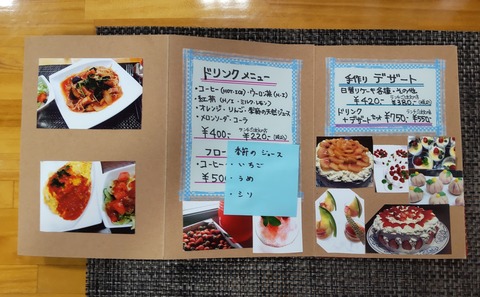 ドリンクメニュー
・コーヒー(HOT・ICE)・ウーロン茶(H・ICE)
・紅茶(H/ICE・ミルク・レモン)
・オレンジ・リンゴ・季節の天然ジュース
・メロンソーダ・コーラ
¥400- ¥220-(税込)
フロー
・コーヒー
¥50
季節のジュース
・いちご
・うめ
・シソ
手作り デザート
日替りケーキ各種・その他
¥420- ¥380-(税込)
ドリンク
+デザートセット ¥750- ¥550-